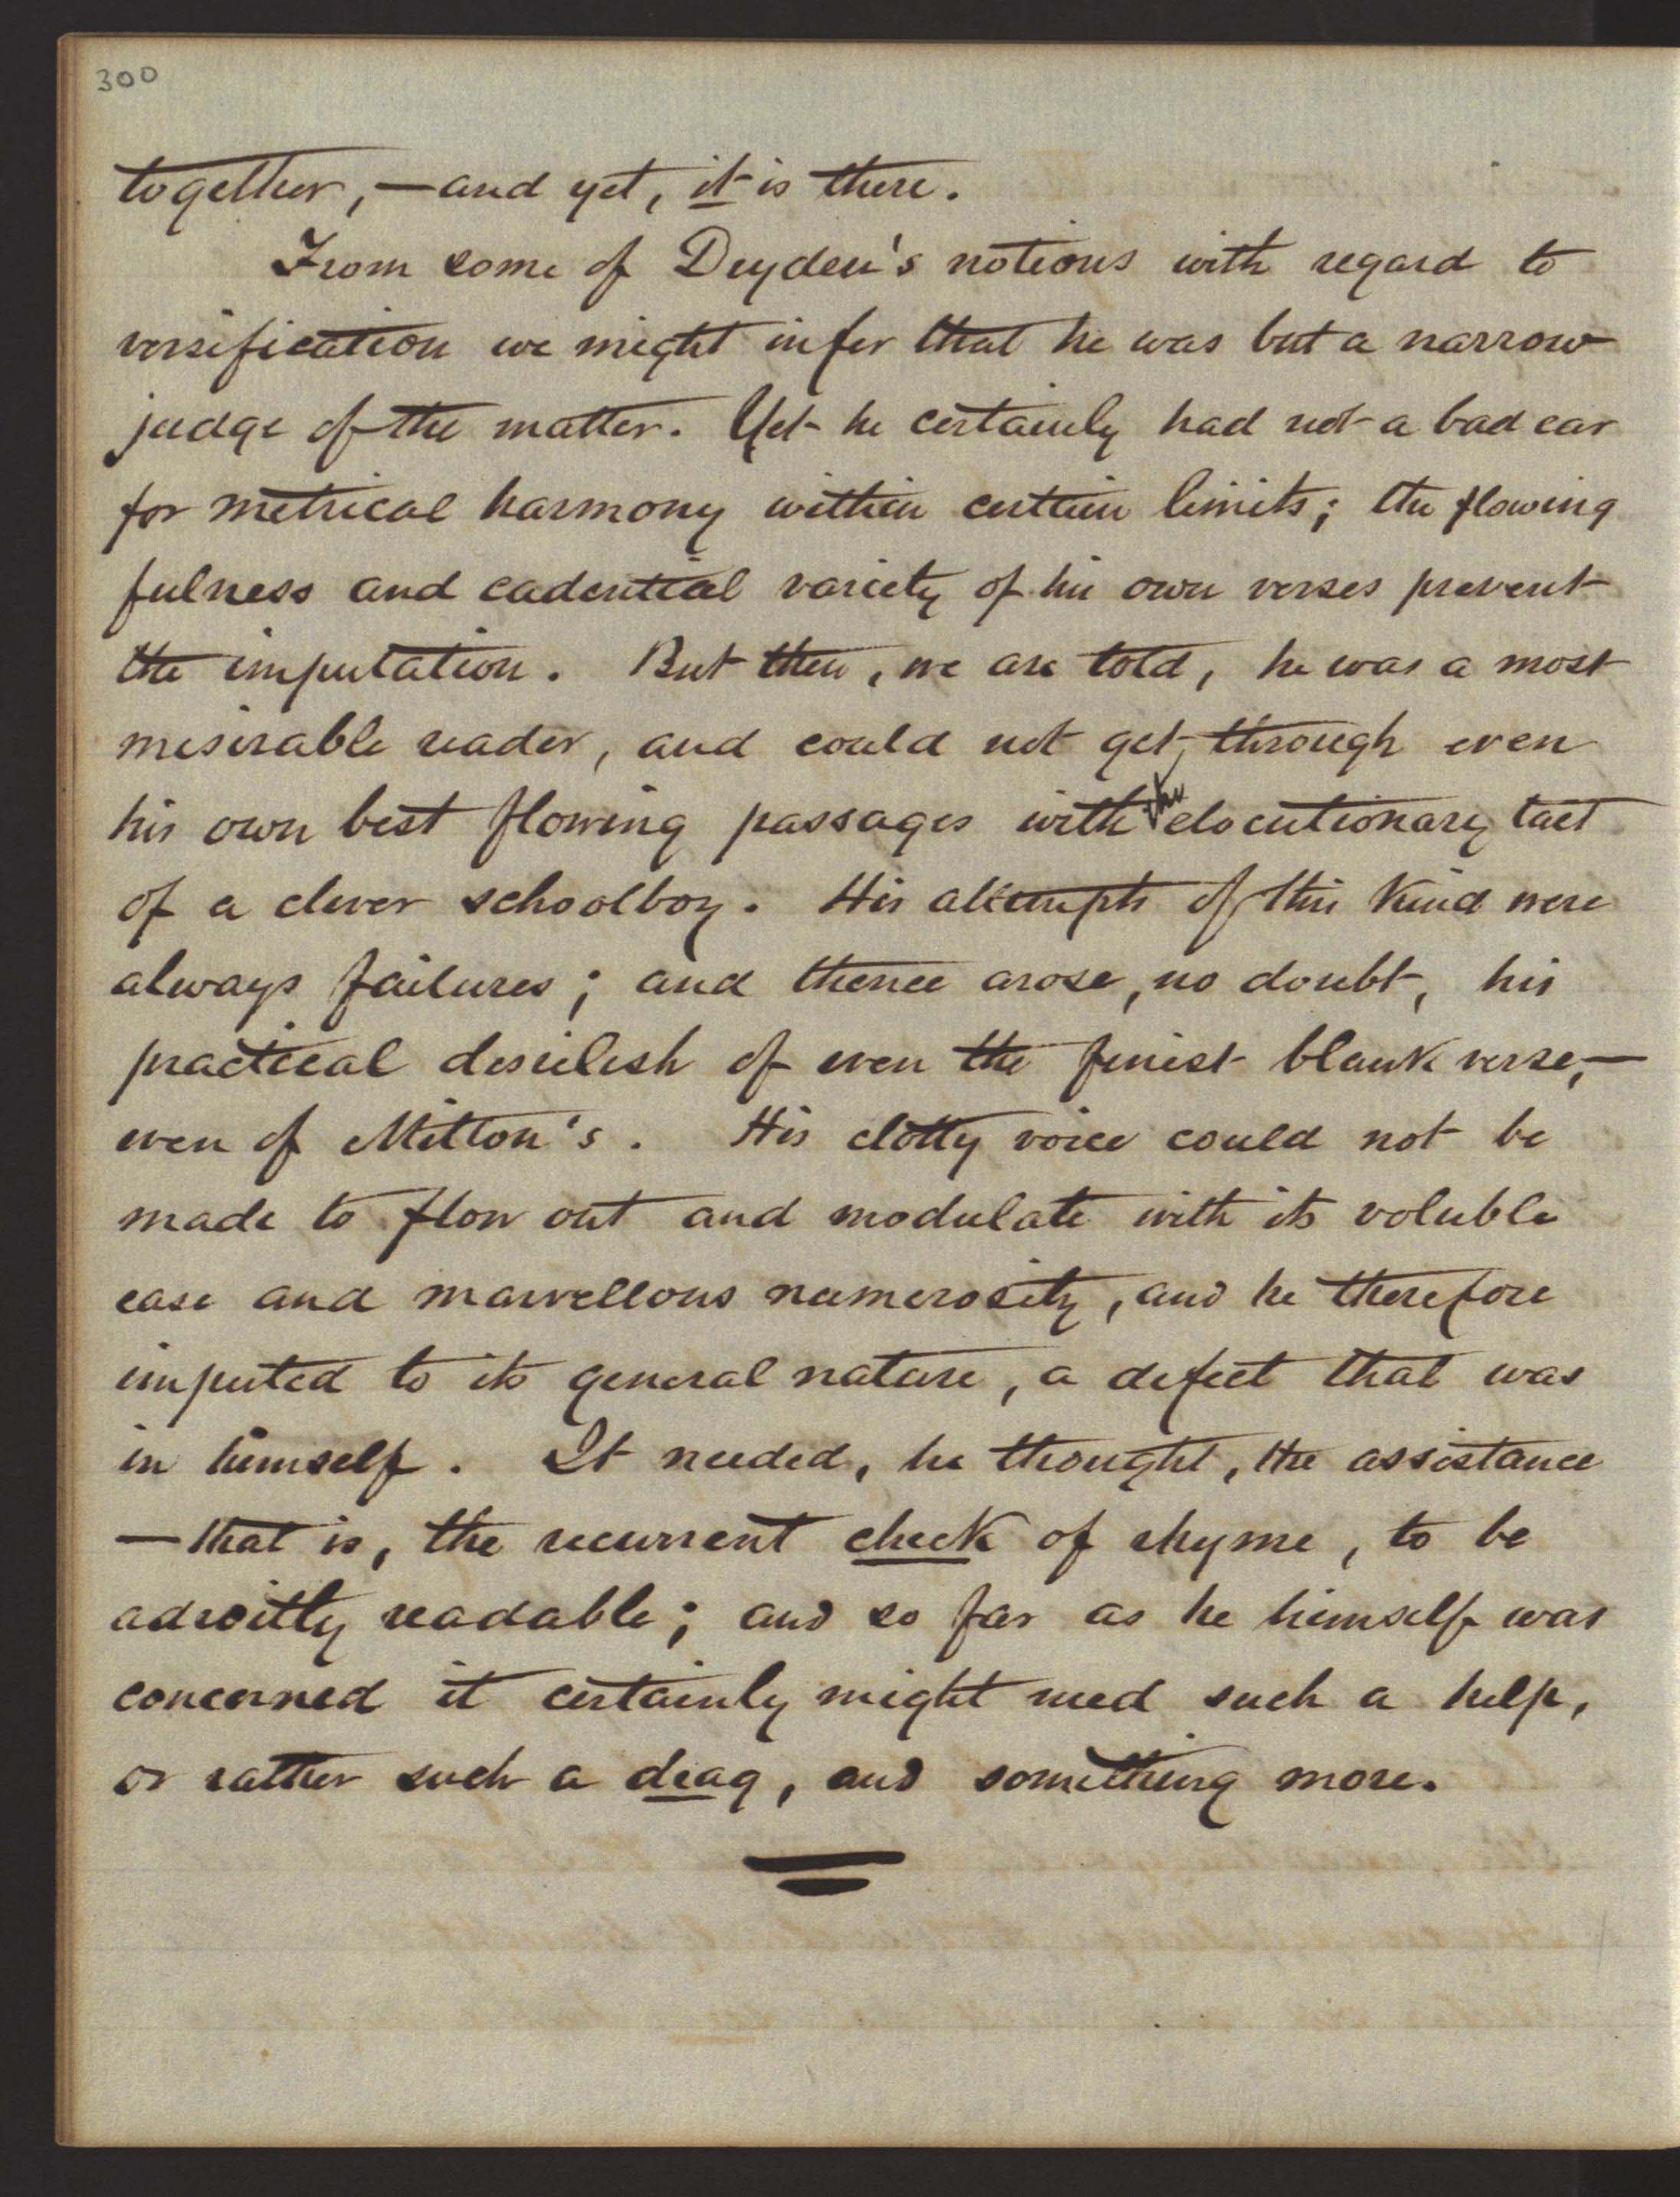 300
together, — and yet, it is there.
From some of Dryden's notions with regard to
versification we might infer that he was but a narrow
judge of the matter. Yet he certainly had not a bad ear
for metrical harmony within certain limits; the flowing
fulness and cadential variety of his own verses prevent
the imputation. But then, we are told, he was a most
miserable reader, and could not get through even
his own best flowing passages with the elocutionary tact
of a clever schoolboy. His attempts of this kind were
always failures; and thence arose, no doubt, his
practical disrelish of even the finest blank verse,—
even of Milton's. His clotty voice could not be
made to flow out and modulate with its voluble
ease and marvellous numerosity, and he therefore
imputed to its general nature, a defect that was
in himself. It needed, he thought, the assistance
— that is, the recurrent check of rhyme, to be
adroitly readable; and so far as he himself was
concerned it certainly might need such a help,
or rather such a drag, and something more.